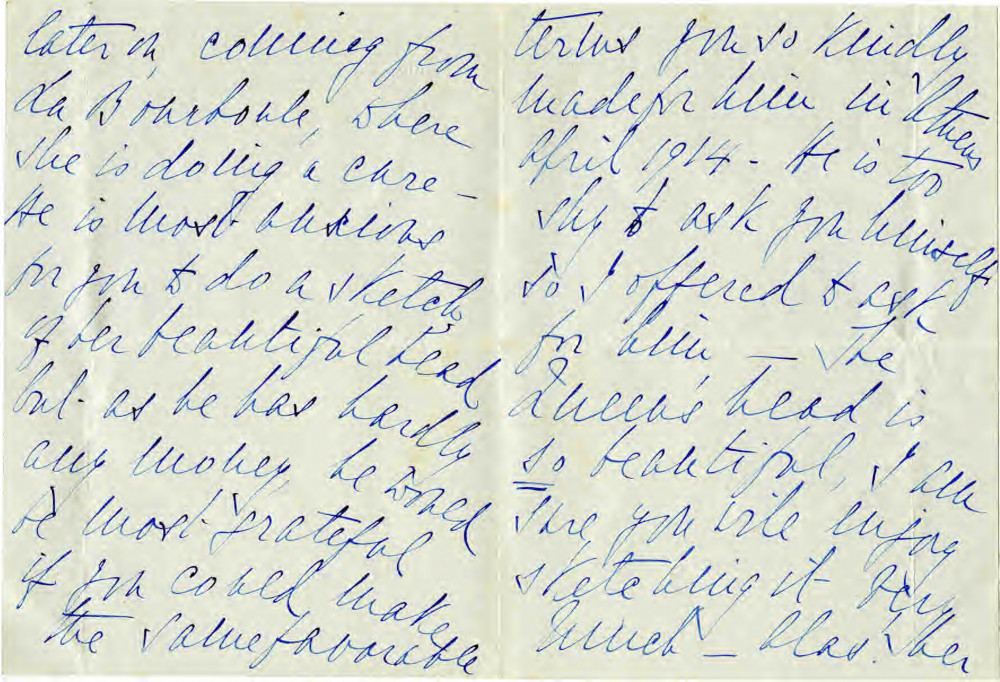 later on, coming from
La Bourboule, where
she is doing a cure –
He is most anxious
for you to do a sketch,
of her beautiful head,
but as he has hardly
any money, he would
be most grateful
if you could make
the same favorable
terms you so kindly
made for him in Athens
April 1914 - He is too
shy to ask you himself
so I offered to ask
for him – The
Queen's head is
so beautiful, I am
sure, you will enjoy
sketching it very
much – alas! her